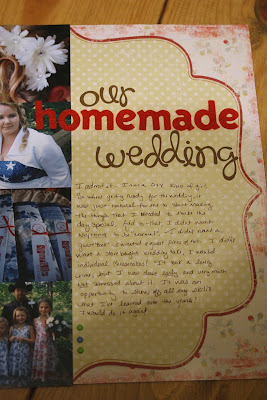 our
homemade
wedding
I admit it. I am a DIY kind of girl.
So when getting ready for the wedding, it
was just natural for me to start making
the things that I needed to make the
day special. Add to that I didn't want
anything to be "normal" - I didn't want a
guest book - I wanted a guest
I didn't
want a store bought wedding
I would
individual personalities! It took a long
time, but I was done early and very much
not stressed about it. It was an
opportunity to show off all my skills
what I've learned over the years!
I would do it again!